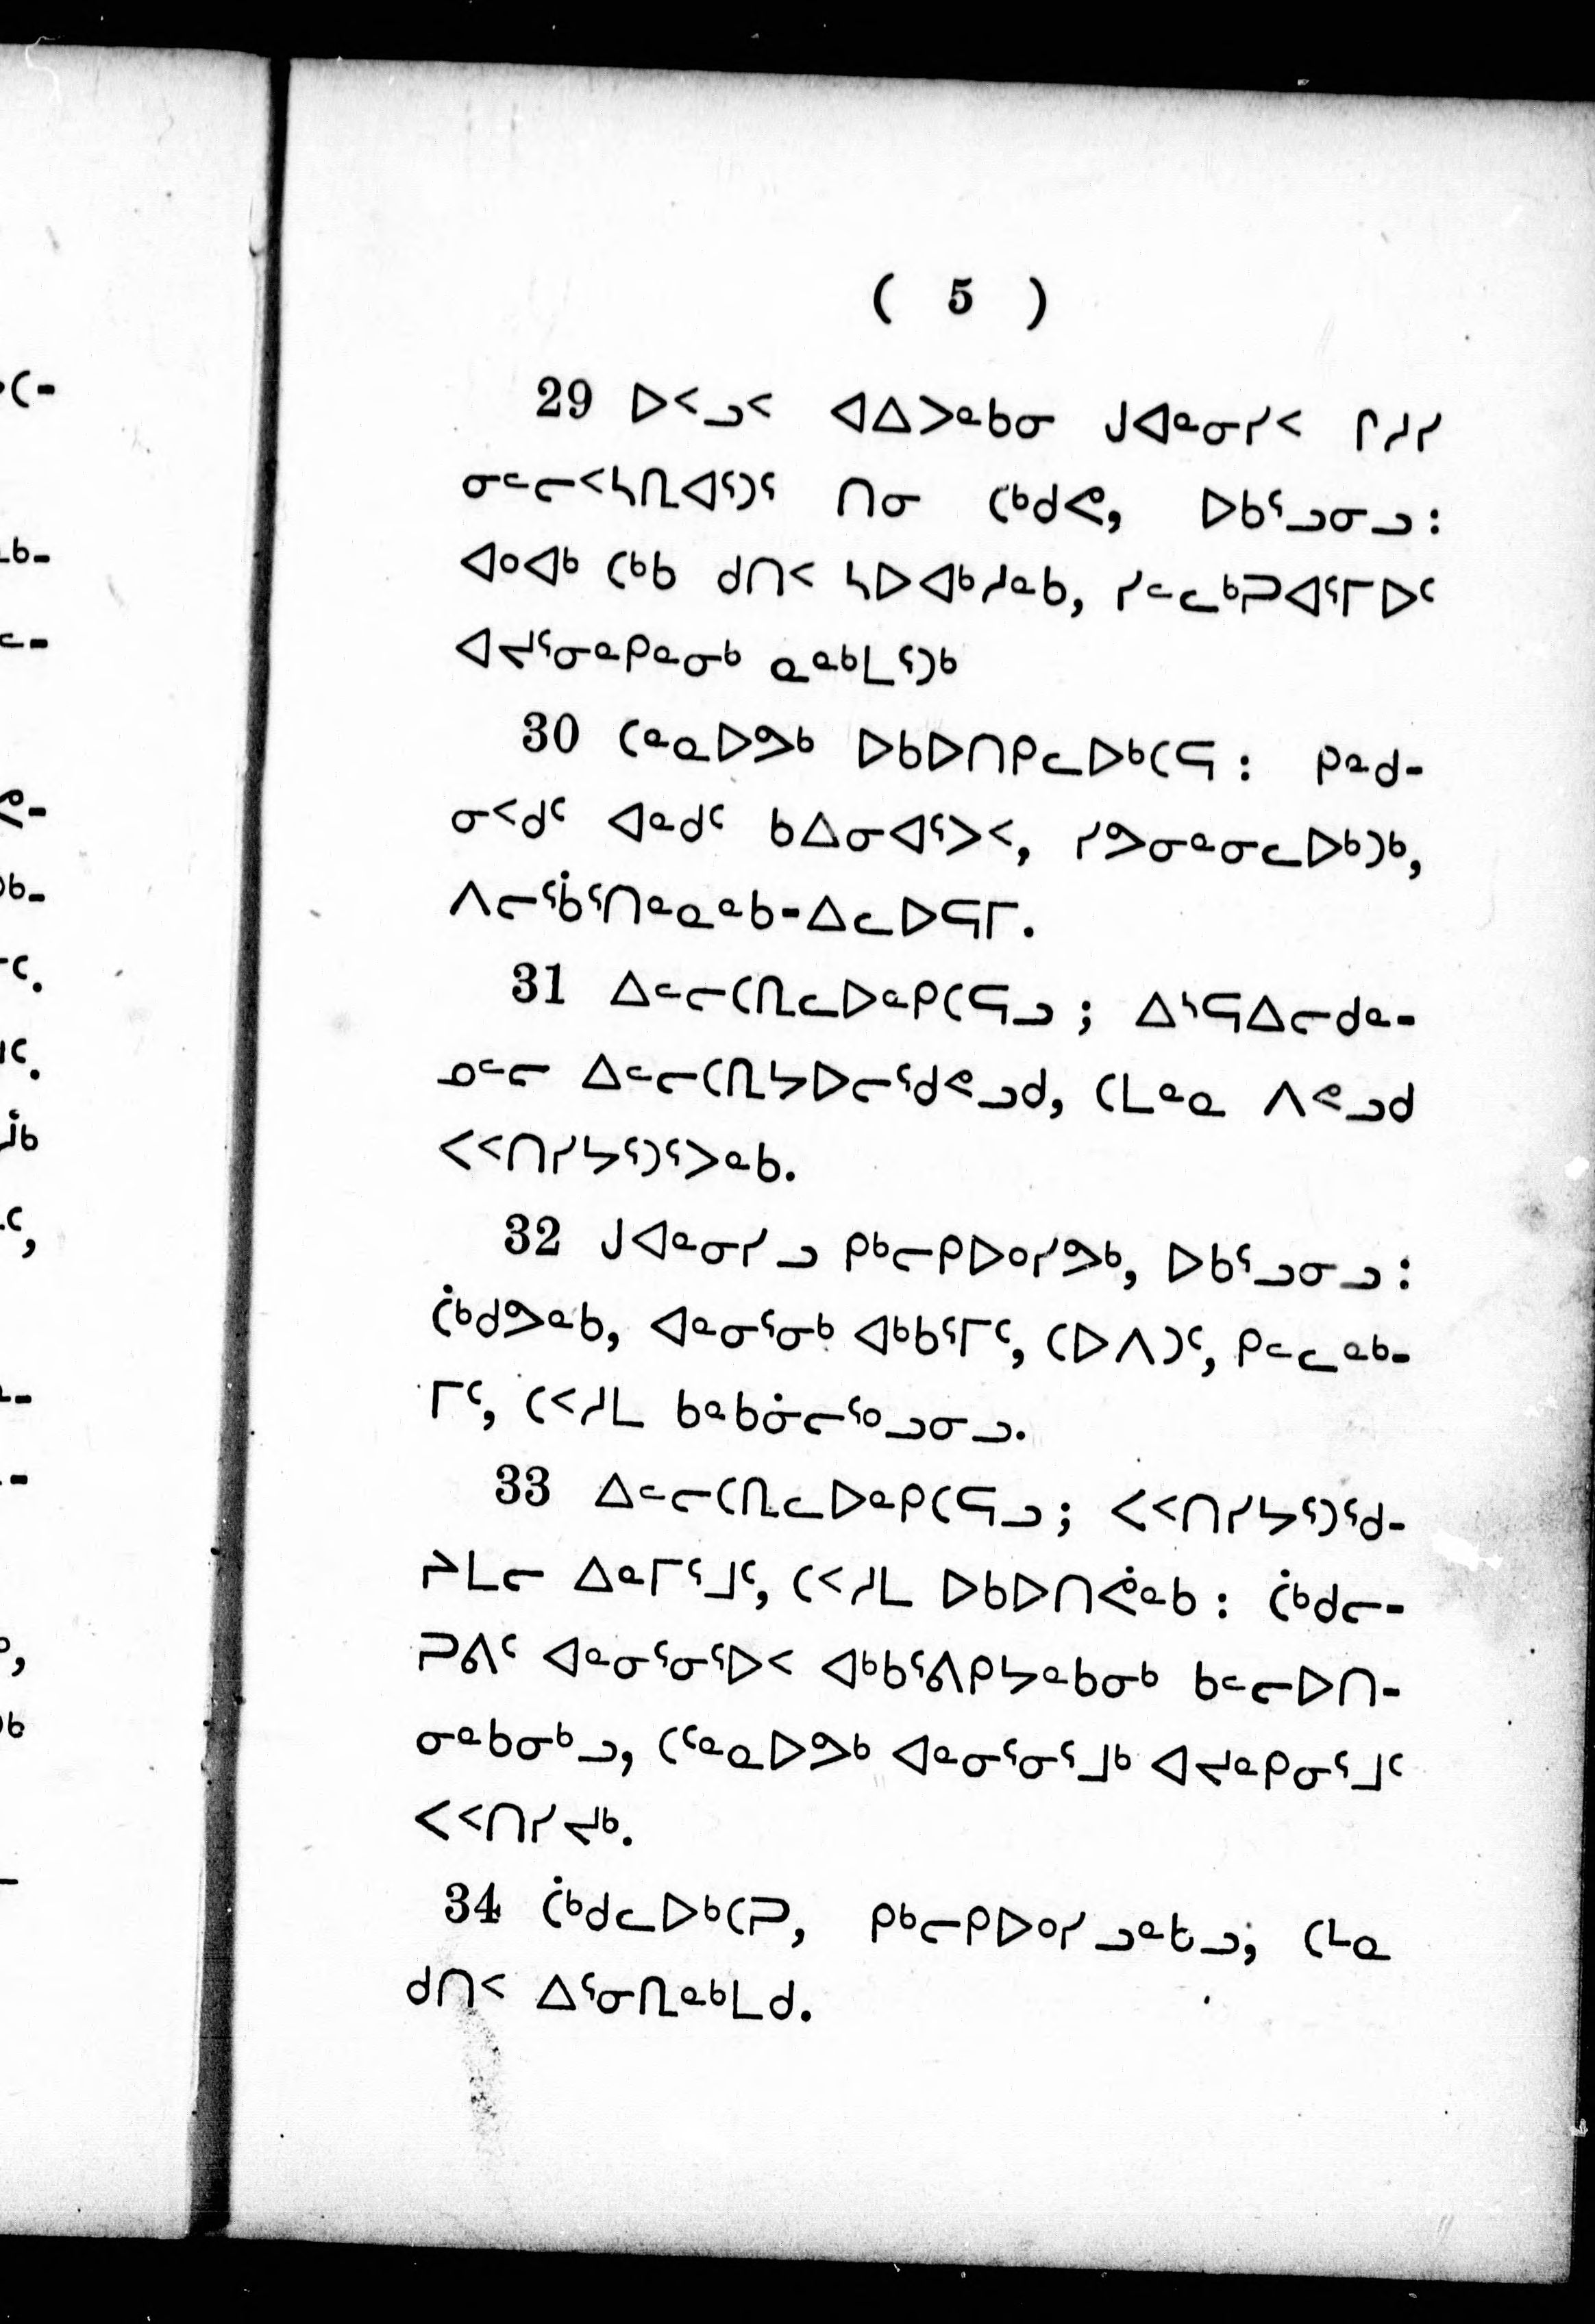 ( 5 )
29 ᐅᑉᓗᑉ ᐊᐃᐳᓐᑲᓂ ᒍᐊᓐᓂᓯᑉ ᒋᓱᓯ
ᓂᓪᓕᑉᓴᕆᐊᕐᑐᕐ ᑎᓂ ᑕᒃᑯᕙ, ᐅᑲᕐᓗᓂᓗ:
ᐊᐤᐊᒃ ᑕᒃᑲ ᑯᑎᑉ ᓴᐅᐊᒃᓱᓐᑲ, ᓯᓪᓚᒃᑐᐊᕐᒥᐅᑦ
ᐊᔪᕐᓂᓐᑭᓐᓂᒃ ᓇᓐᒃᒪᕐᑐᒃ
30 ᑕᓐᓇᐅᕗᒃ ᐅᑲᐅᑎᑭᓚᐅᒃᑕᕋ: ᑭᓐᑯ-
ᓂᑉᑯᑦ ᐊᓐᑯᑦ ᑲᐃᓂᐊᕐᐳᑉ, ᓯᕗᓂᓐᓂᓚᐅᒃᑐᒃ,
ᐱᓕᕐᑳᕐᑎᓐᓇᓐᑲ-ᐃᓚᐅᕋᒥ.
31 ᐃᓪᓕᑕᕆᓚᐅᓐᑭᑕᕋᓗ; ᐃᔅᕋᐃᓕᑯᓐ-
ᓄᓪᓕ ᐃᓪᓕᑕᕆᔭᐅᓕᕐᑯᕝᓗᑯ, ᑕᒪᓐᓇ ᐱᕝᓗᑯ
ᐸᑉᑎᓯᔭᕐᑐᕐᐳᓐᑲ.
32 ᒍᐊᓐᓂᓯᓗ ᑭᒃᓕᑭᐅᐤᓯᕗᒃ, ᐅᑲᕐᓗᓂᓗ:
ᑖᒃᑯᕗᓐᑲ, ᐊᓐᓂᕐᓂᒃ ᐊᒃᑲᕐᒥᑦ, ᑕᐅᐱᑐᑦ, ᑭᓪᓚᓐᒃ-
ᒥᑦ, ᑕᑉᓱᒪ ᑲᓐᑲᓃᓕᕐᐤᓗᓂᓗ.
33 ᐃᓪᓕᑕᕆᓚᐅᓐᑭᑕᕋᓗ; ᐸᑉᑎᓯᔭᕐᑐᕐᑯ-
ᔨᒪᓕ ᐃᓐᒥᕐᒧᑦ, ᑕᑉᓱᒪ ᐅᑲᐅᑎᕚᓐᑲ: ᑖᒃᑯᓕ-
ᑐᕕᑦ ᐊᓐᓂᕐᓂᕐᐅᑉ ᐊᒃᑲᕐᕕᑭᔭᓐᑲᓂᒃ ᑲᓪᓕᐅᑎ-
ᓂᓐᑲᓂᒃᓗ, ᑕᕐᓐᓇᐅᕗᒃ ᐊᓐᓂᕐᓂᕐᒧᒃ ᐊᔪᓐᑭᓂᕐᒧᑦ
ᐸᑉᑎᓯᔪᒃ.
34 ᑖᒃᑯᓚᐅᒃᑕᑐ, ᑭᒃᓕᑭᐅᐤᓯᓗᓐᑲᓗ; ᑕᒻᓇ
ᑯᑎᑉ ᐃᕐᓂᕆᓐᒃᒪᑯ.